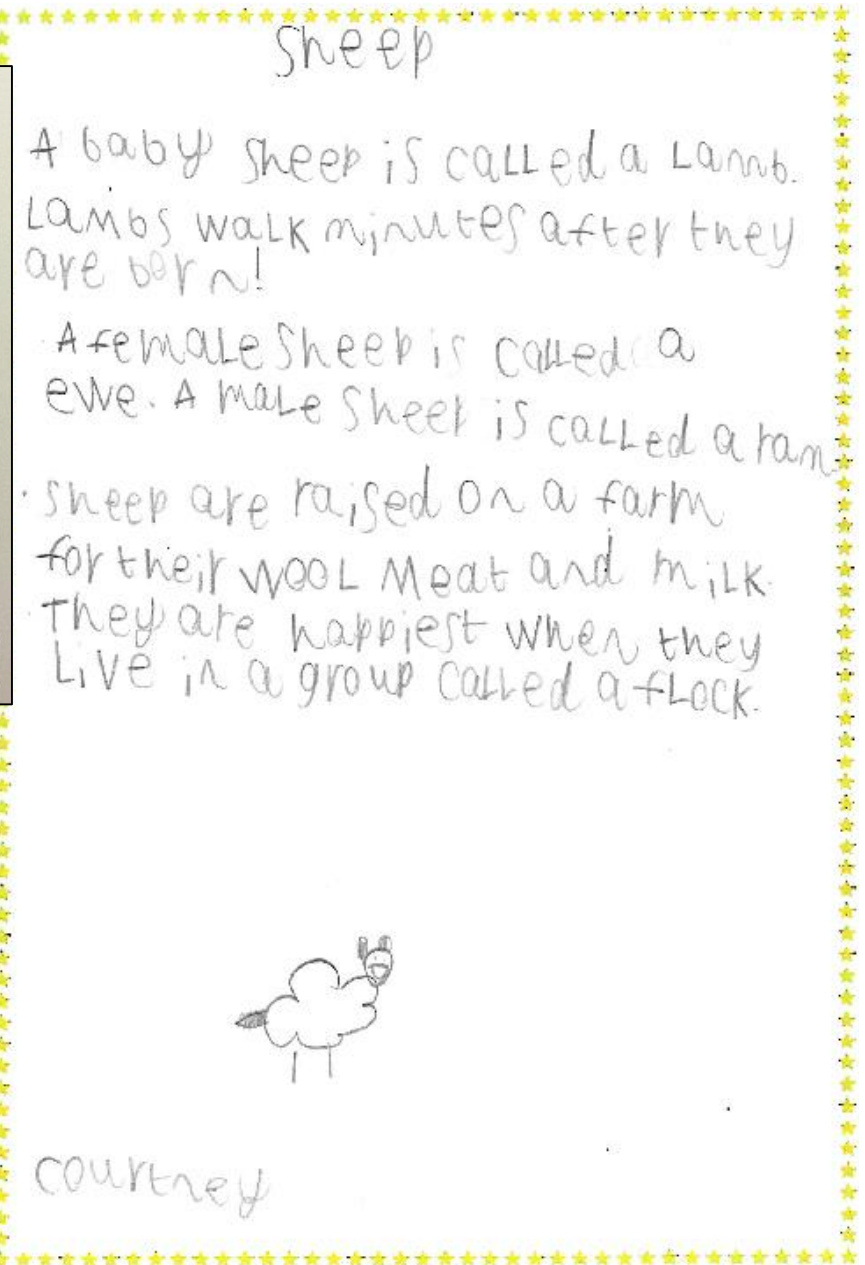 Sheep
A baby sheep is called a Lamb.
Lambs walk minutes after they
are born!
A female sheep is called a
ewe. A male sheep is called a ram
sheep are raised on a farm
for their wool Meat and milk.
They are happiest when they
Live in a group called a flock.
courtney